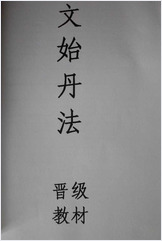 文始丹法
晋级
教材